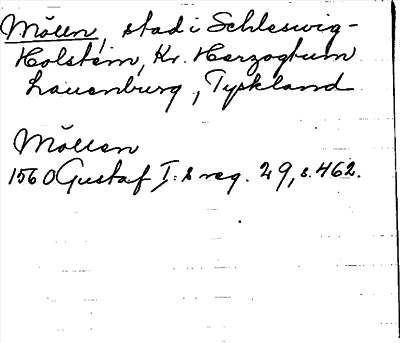 Mölln, stad i Schleswig-
Holstein, Kr. Herzogtum
Lauenburg, Tyskland
Möllen
1560 Gustaf I:s reg. 29, s. 462.